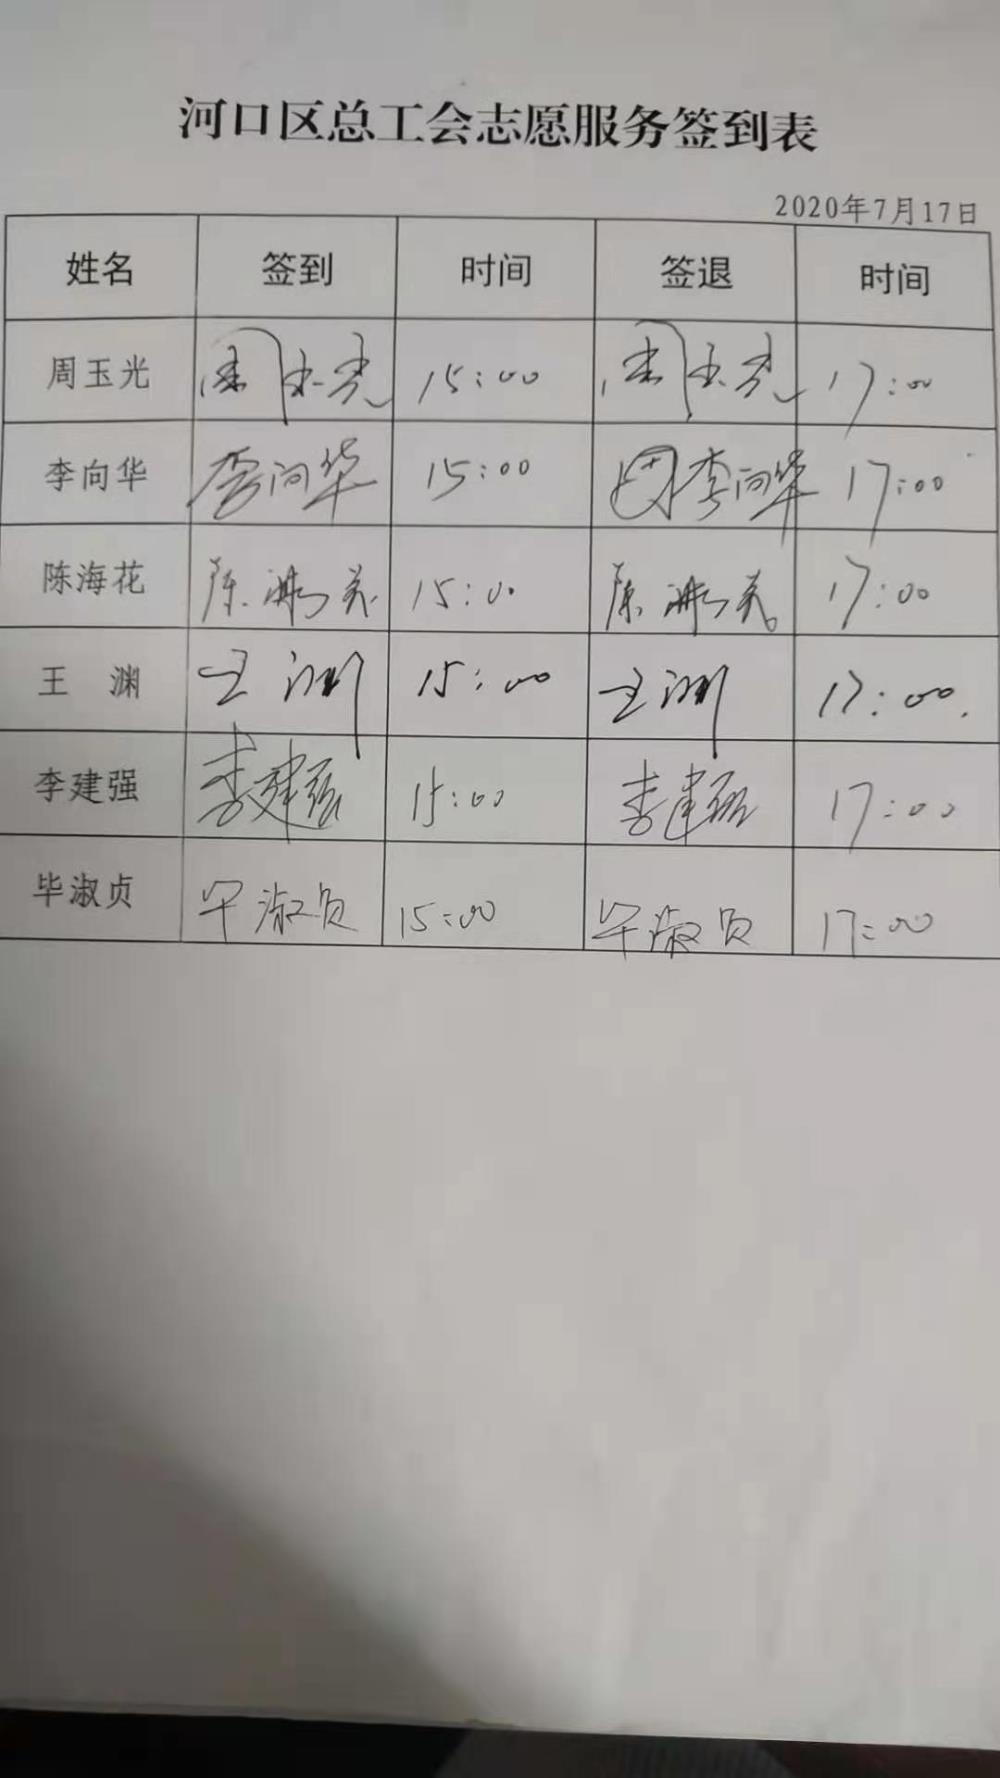 河口区总工会志愿服务签到表
2020年7月17日
姓名 签到 时间 签退 时间
周玉光 周玉光 15:00 周玉光 17:00
李向华 李向华 15:00 李向华 17:00
陈海花 陈海花 15:00 陈海花 17:00
王 渊 王渊 15:00 王渊 17:00
李建强 李建强 15:00 李建强 17:00
毕淑贞 毕淑贞 15:00 毕淑贞 17:00